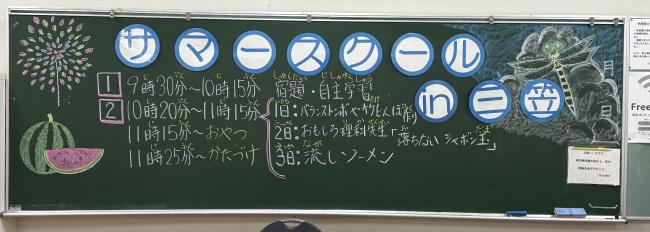 サマースクール
in三笠
1 9時30分～10時15分 宿題・自主学習
2 10時20分～11時15分
1日：バランストンボや竹とんぼ作り
2日：おもしろ理科先生「落らないシャボン玉」
3日：流しソーメン
11時15分～おやつ
11時25分～かたづけ
月
日
Free